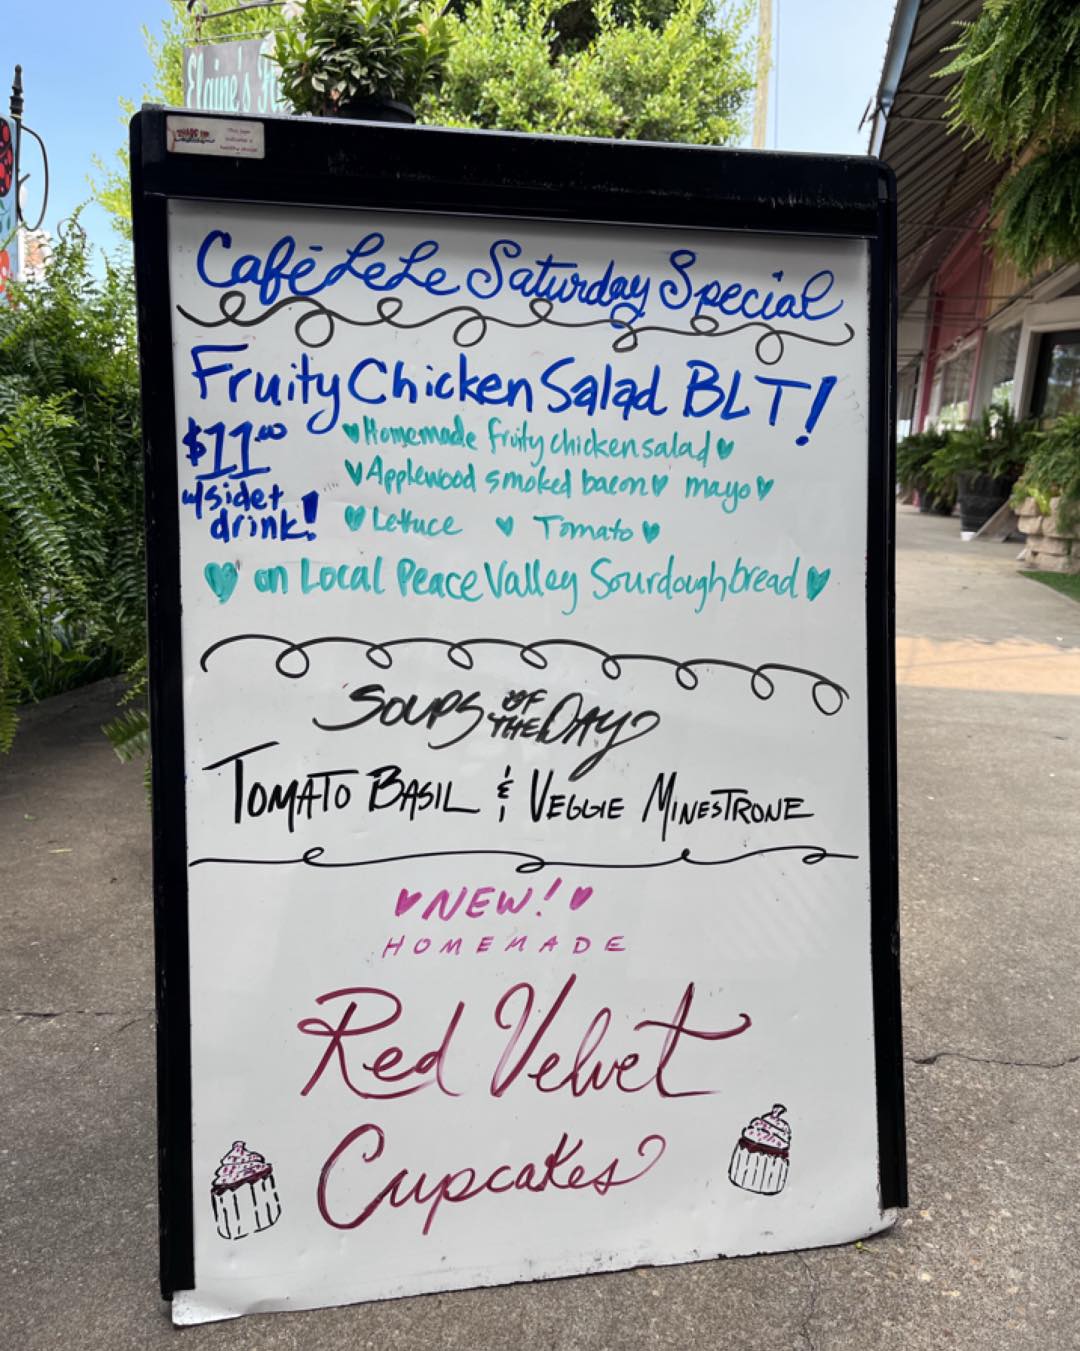 Elaine's
Café LeLe Saturday Special
Fruity Chicken Salad BLT!
$11.00
w/side + drink!
♥ Homemade fruity chicken salad ♥
♥ Applewood smoked bacon ♥ mayo ♥
♥ Lettuce ♥ Tomato ♥
♥ on Local Peace Valley Sourdough bread ♥
SOUPS OF THE DAY
TOMATO BASIL & VEGGIE MINESTRONE
♥ NEW! ♥
HOMEMADE
Red Velvet
Cupcakes